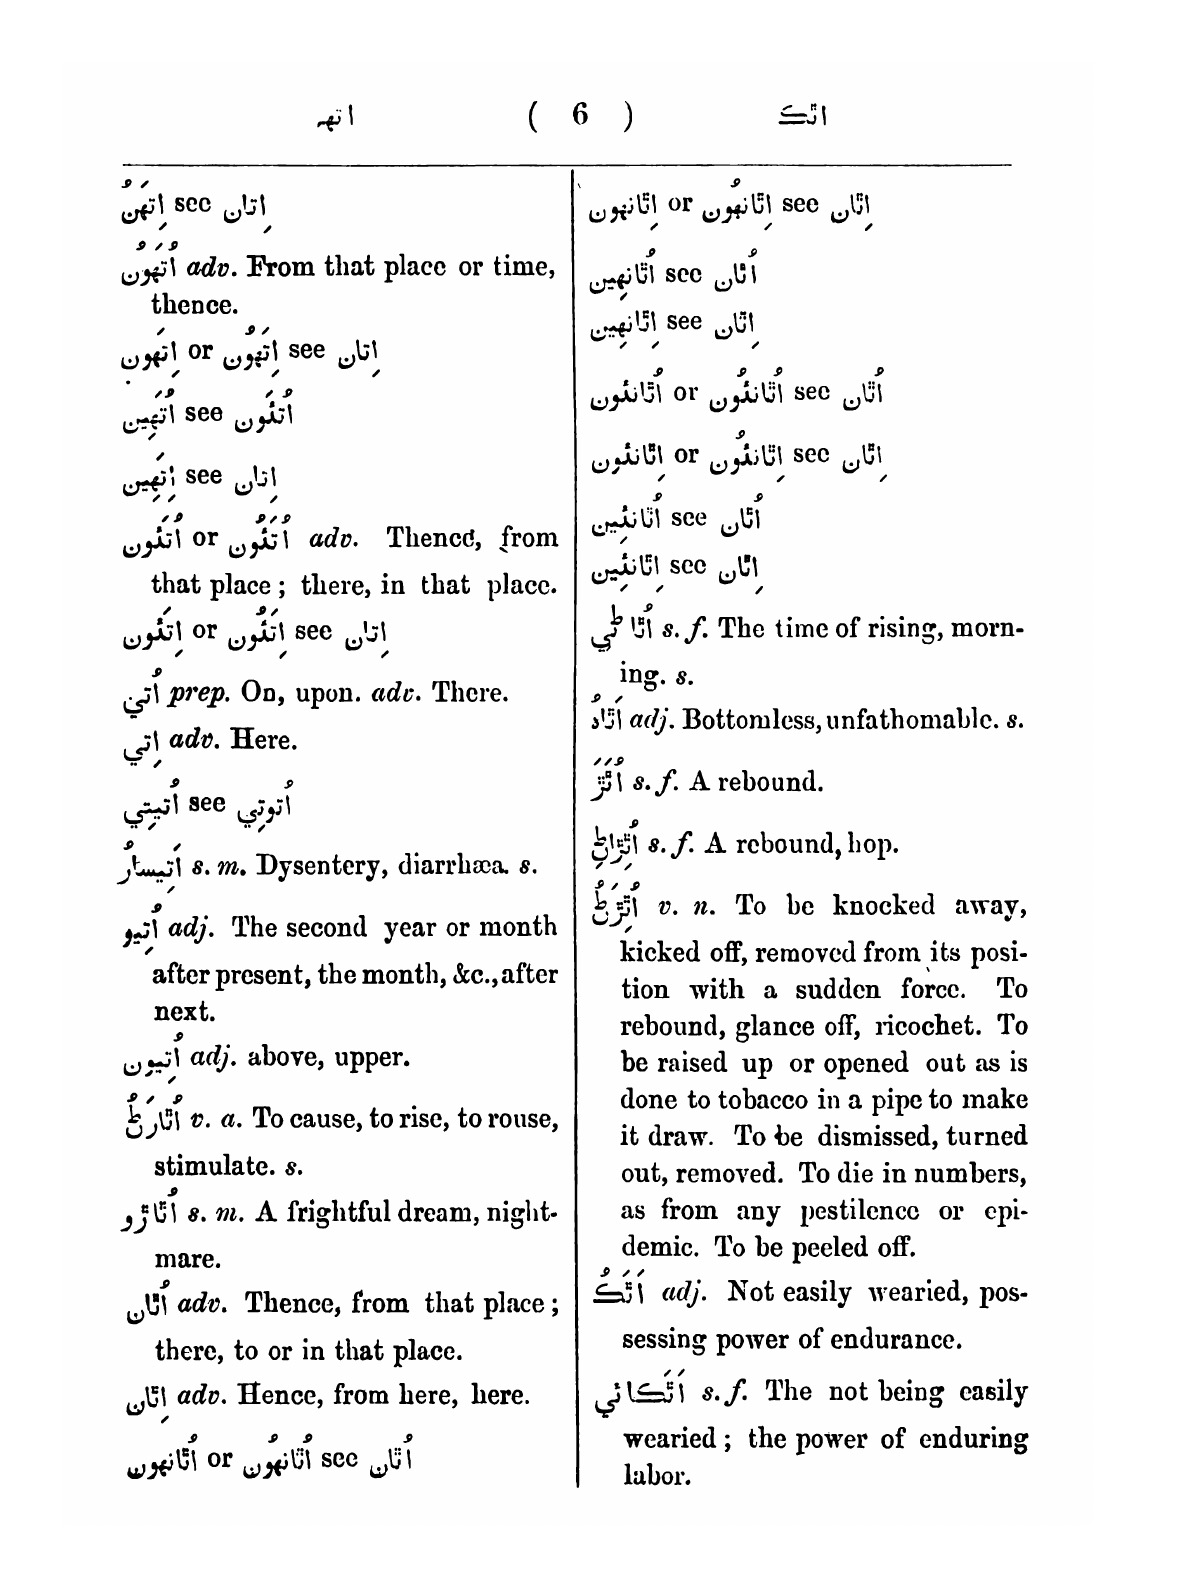 اتهہ ( 6 ) اٿڪ
اِتَهِنُ see اِتان
اُتَهُون adv. From that place or time,
thence.
اِتَهون or اِتَهُون see اِتان
اُتَهِين see اُتَئُون
اِتَهِين see اِتان
اُتَئون or اُتَئُون adv. Thence, from
that place; there, in that place.
اِتَئون or اِتَئُون see اِتان
اُتي prep. On, upon. adv. There.
اِتي adv. Here.
اُتيتِي see اُتوتِي
اَتِيسارُ s. m. Dysentery, diarrhæa. s.
اُتِيو adj. The second year or month
after present, the month, &c., after
next.
اُتِيون adj. above, upper.
اُٿارَڻُ v. a. To cause, to rise, to rouse,
stimulate. s.
اُٿاڙو s. m. A frightful dream, night-
mare.
اُٿان adv. Thence, from that place;
there, to or in that place.
اِٿان adv. Hence, from here, here.
اُٿانهون or اُٿانهُون see اُٿان
اِٿانِهون or اِٿانِهُون see اِٿان
اُٿانِهين see اُٿان
اِٿانِهِين see اِٿان
اُٿانئون or اُٿانئُون see اُٿان
اِٿانئون or اِٿانئُون see اِٿان
اُٿانِئين see اُٿان
اِٿانِئِين see اِٿان
s. f. The time of rising, morn-
ing. s.
adj. Bottomless, unfathomable. s.
s. f. A rebound.
s. f. A rebound, hop.
v. n. To be knocked away,
kicked off, removed from its posi-
tion with a sudden force. To
rebound, glance off, ricochet. To
be raised up or opened out as is
done to tobacco in a pipe to make
it draw. To be dismissed, turned
out, removed. To die in numbers,
as from any pestilence or epi-
demic. To be peeled off.
اَٿَڪُ adj. Not easily wearied, pos-
sessing power of endurance.
اَٿَڪائي s. f. The not being easily
wearied; the power of enduring
labor.